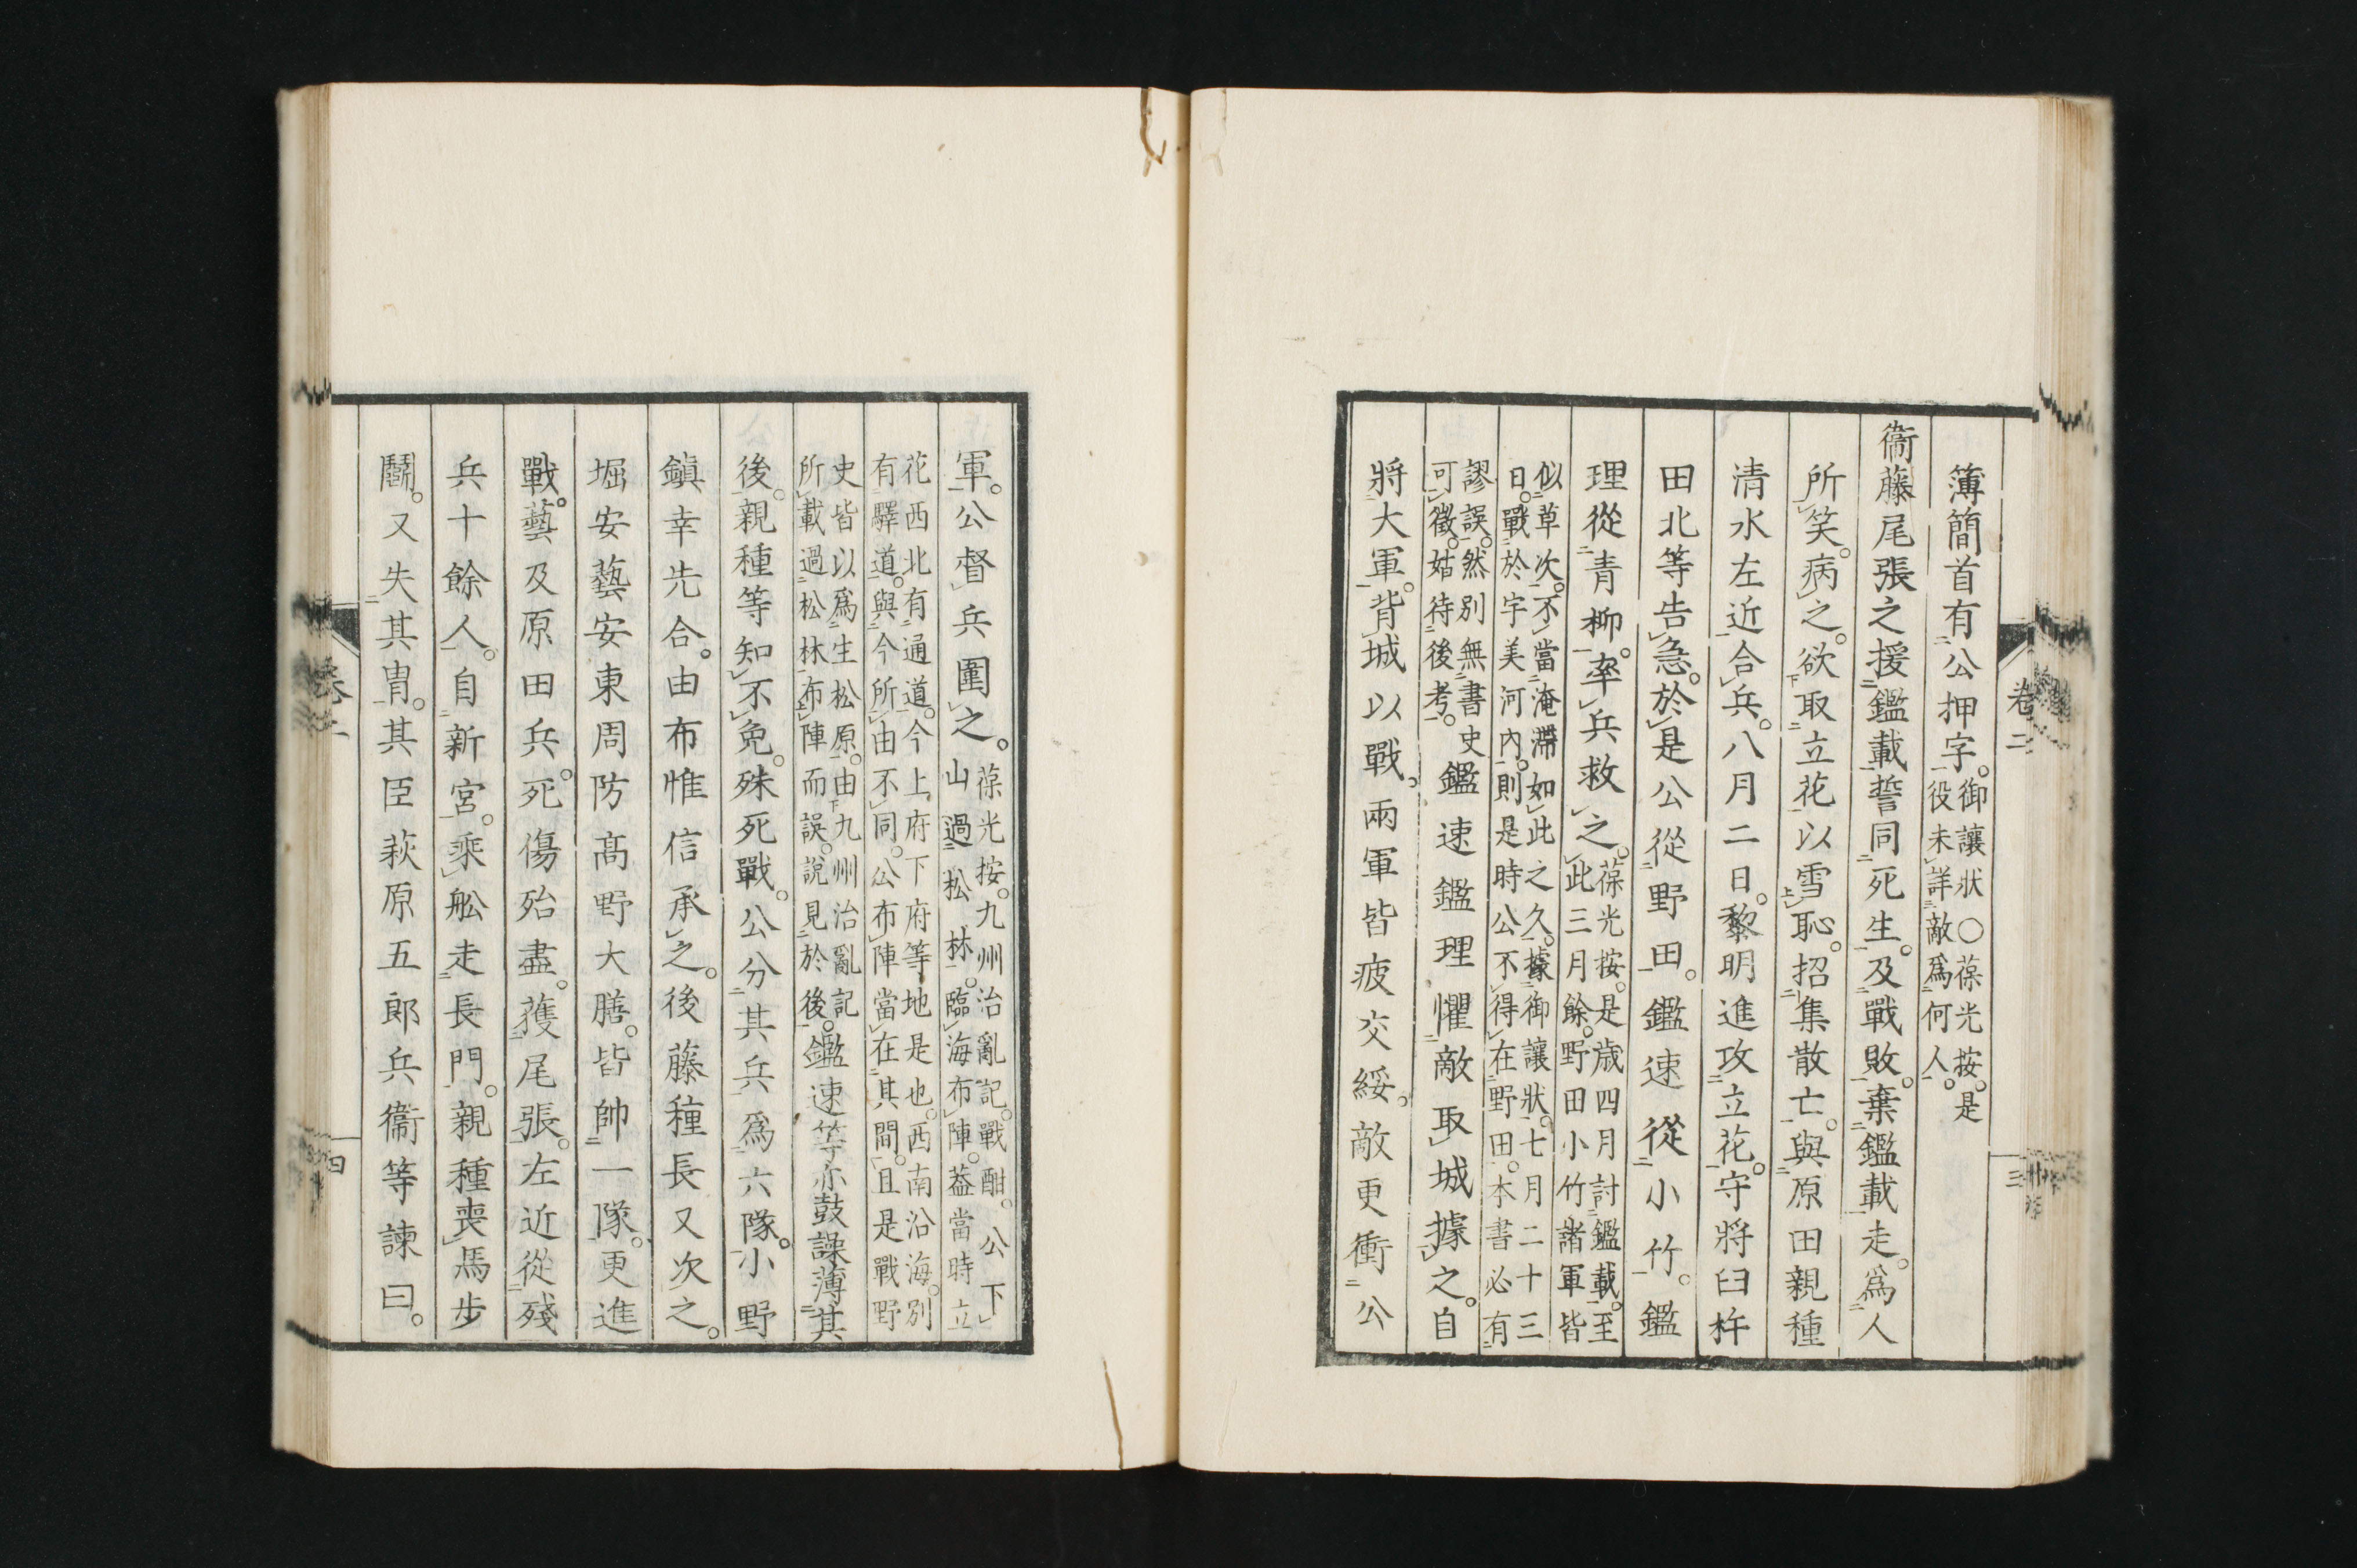 卷二
三
簿簡首有公押字。御讓狀○葆光按。是
役未詳敵爲何人。
衞藤尾張之援鑑載誓同死生。及戰敗。棄鑑載走。爲人
所笑。病之。欲取立花以雪恥。招集散亡。與原田親種
清水左近合兵。八月二日。黎明進攻立花。守將臼杵
田北等告急。於是公從野田。鑑速從小竹。鑑
理從青柳。率兵救之。葆光按。是歳四月討鑑載。至
此三月餘。野田小竹諸軍皆
似草次。不當淹滯如此之久。據御讓狀。七月二十三
日。戰於宇美河內。則是時公不得在野田。本書必有
謬誤。然別無書史
可徵。姑待後考。鑑速鑑理懼敵取城據之。自
將大軍。背城以戰。兩軍皆疲交綏。敵更衝公
軍。公督兵圍之。葆光按。九州治亂記。戰酣。公下
山過松林。臨海布陣。葢當時立
花西北有通道。今上府下府等地是也。西南沿海。別
有驛道。與今所由不同。公布陣當在其間。且是戰野
史皆以爲生松原。由九州治亂記
所載過松林布陣而誤。說見於後。鑑速等亦鼓譟薄其
後。親種等知不免。殊死戰。公分其兵爲六隊。小野
鎮幸先合。由布惟信承之。後藤種長又次之。
堀安藝安東周防高野大膳。皆帥一隊。更進
戰。藝及原田兵。死傷殆盡。獲尾張。左近從殘
兵十餘人。自新宮。乘舩走長門。親種喪馬步
鬬。又失其冑。其臣萩原五郎兵衞等諫曰。
卷二
四